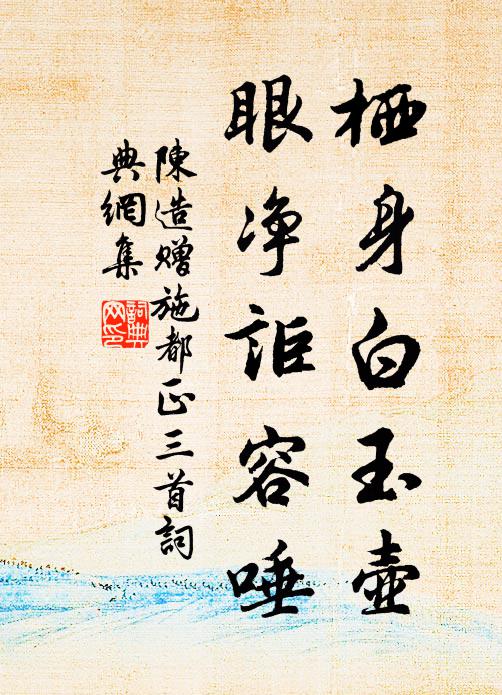 栖身白玉壶
眼净讵容唾
陳造贈施都正三首詞
典網集
詞典網印